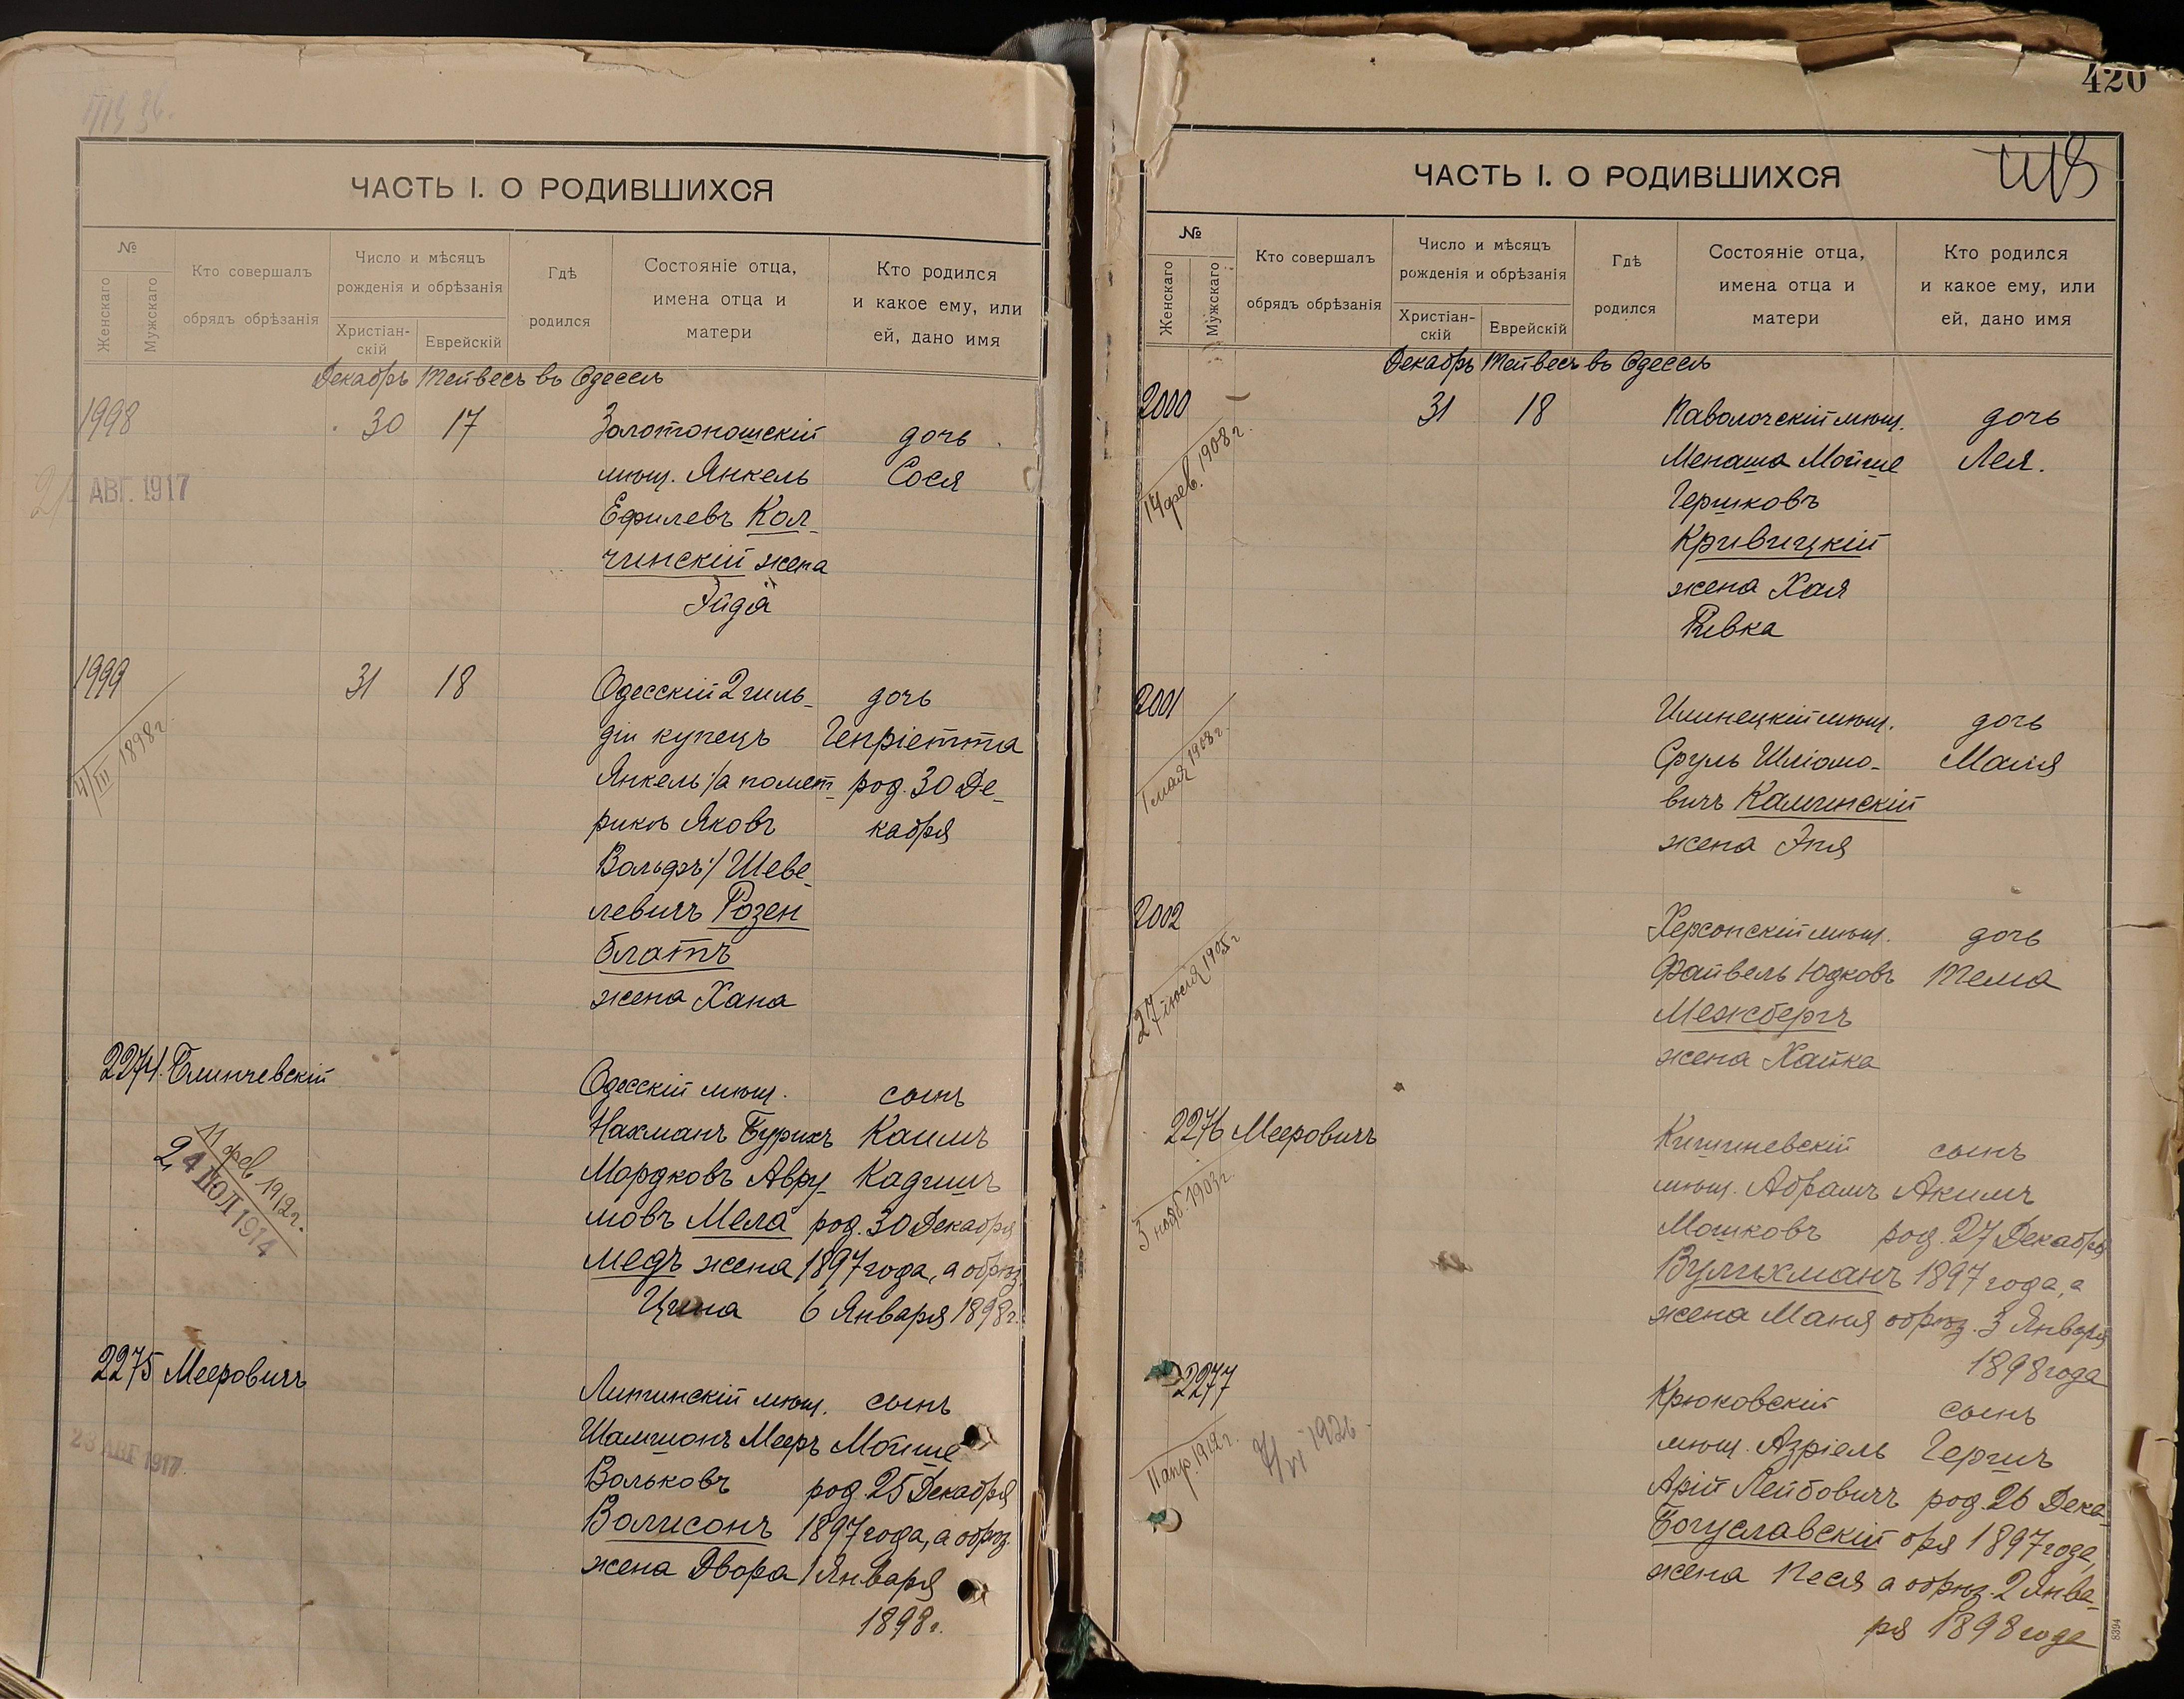 ЧАСТЬ I. О РОДИВШИХСЯ
№
Женскаго
Мужскаго
Кто совершалъ
обрядъ обрѣзанія
Число и мѣсяцъ
рожденія и обрѣзанія
Христіан-
скій
Еврейскій
Гдѣ
родился
Состояніе отца,
имена отца и
матери
Кто родился
и какое ему, или
ей, дано имя
Декабрь Тейвесъ въ Одессѣ
1998 30 17 Золотоношскій дочь
мѣщ. Янкель Сося
Ефилевъ Кол-
чинскій жена
Эйдя
АВГ. 1917
1999 31 18 Одесскій 2 гиль- дочь
діи купецъ Генріетта
Янкель /а по мет- род. 30 Де-
рикѣ Яковъ кабря
Вольфъ/ Шеве-
левичъ Розен
блатъ
жена Хана
4/III 1898 г.
2274 Блинчевскій Одесскій мѣщ. сынъ
Нахманъ Бурихъ Каимъ
Мордковъ Авру- Кадишъ
мовъ Мела род. 30 Декабря
медъ жена 1897 года, а обрѣз.
Цина 6 Января 1898 г.
11 фев. 1912 г.
24 ІЮЛ 1914
2275 Мееровичъ Литинскій мѣщ. сынъ
Шамшонъ Мееръ Мойше
Вольковъ род. 25 Декабря
Волисонъ 1897 года, а обрѣз.
жена Двора 1 Января
1898 г.
23 АВГ 1917
420
ЧАСТЬ I. О РОДИВШИХСЯ
№
Женскаго
Мужскаго
Кто совершалъ
обрядъ обрѣзанія
Число и мѣсяцъ
рожденія и обрѣзанія
Христіан-
скій
Еврейскій
Гдѣ
родился
Состояніе отца,
имена отца и
матери
Кто родился
и какое ему, или
ей, дано имя
Декабрь Тейвесъ въ Одессѣ
2000 31 18 Паволочскій мѣщ. дочь
Менаша Мойше Лея.
Гершковъ
Кривицкій
жена Хая
Ривка
14 фев. 1908 г.
2001 Илинецкій мѣщ. дочь
Сруль Шліомо- Маня
вичъ Калминскій
жена Эня
1 мая 1908 г.
2002 Херсонскій мѣщ. дочь
Файвель Юдковъ Тема
Межбергъ
жена Хайка
27 іюля 1905 г
2276 Мееровичъ Кишиневскій сынъ
мѣщ. Абрамъ Акимъ
Мошковъ род. 27 Декабря
Вулихманъ 1897 года, а
жена Маня обрѣз. 3 Января
1898 года
3 нояб. 1903 г.
2277 Крюковскій сынъ
мѣщ. Азріель Гершъ
Арій Лейбовичъ род. 26 Дека-
Богуславскій бря 1897 года,
жена Песя а обрѣз. 2 Янва-
ря 1898 года
11 апр. 1912 г.
8394